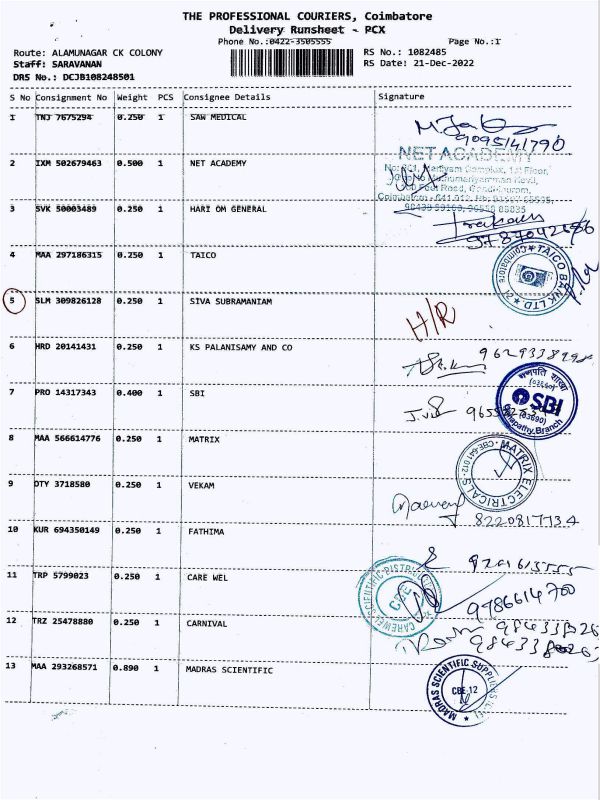 THE PROFESSIONAL COURIERS, Coimbatore
Delivery Runsheet - PCX
Phone No.:0422-3505555 Page No.:1
Route: ALAMUNAGAR CK COLONY RS No.: 1082485
Staff: SARAVANAN RS Date: 21-Dec-2022
DRS No.: DCJB108248501
S No Consignment No Weight PCS Consignee Details Signature
1 TNJ 7675294 0.250 1 SAW MEDICAL
9095141790
2 IXM 502679463 0.500 1 NET ACADEMY
NET ACADEMY
3 SVK 50003489 0.250 1 HARI OM GENERAL
4 MAA 297186315 0.250 1 TAICO
TAICO BANK LTD Coimbatore
5 SLM 309826128 0.250 1 SIVA SUBRAMANIAM
H/R
6 HRD 20141431 0.250 1 KS PALANISAMY AND CO
7 PRO 14317343 0.400 1 SBI
गणपति शाखा
(03690)
SBI
(03690)
Ganapathy Branch
8 MAA 566614776 0.250 1 MATRIX
MATRIX ELECTRICALS CBE-641 012
9 OTY 3718580 0.250 1 VEKAM
8220817734
10 KUR 694350149 0.250 1 FATHIMA
11 TRP 5799023 0.250 1 CARE WEL
CAREWEL SCIENTIFIC DISTRIBUTORS
9786614700
12 TRZ 25478880 0.250 1 CARNIVAL
13 MAA 293268571 0.890 1 MADRAS SCIENTIFIC
MADRAS SCIENTIFIC SUPPLIERS
CBE-12